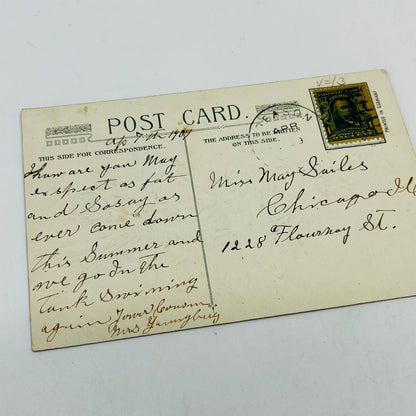 V=13
POST CARD.
THIS SIDE FOR CORRESPONDENCE.
THE ADDRESS TO BE WRITTEN
ON THIS SIDE.
PRINTED IN GERMANY
APR
Ap 7th 1909
how are you May
expect as fat
and Sasay as
ever come down
this Summer and
we go in the
tank swiming
again Your Cousin
Mrs Youngberg
Miss May Suiles
Chicago Ill
1228 Flournoy St.